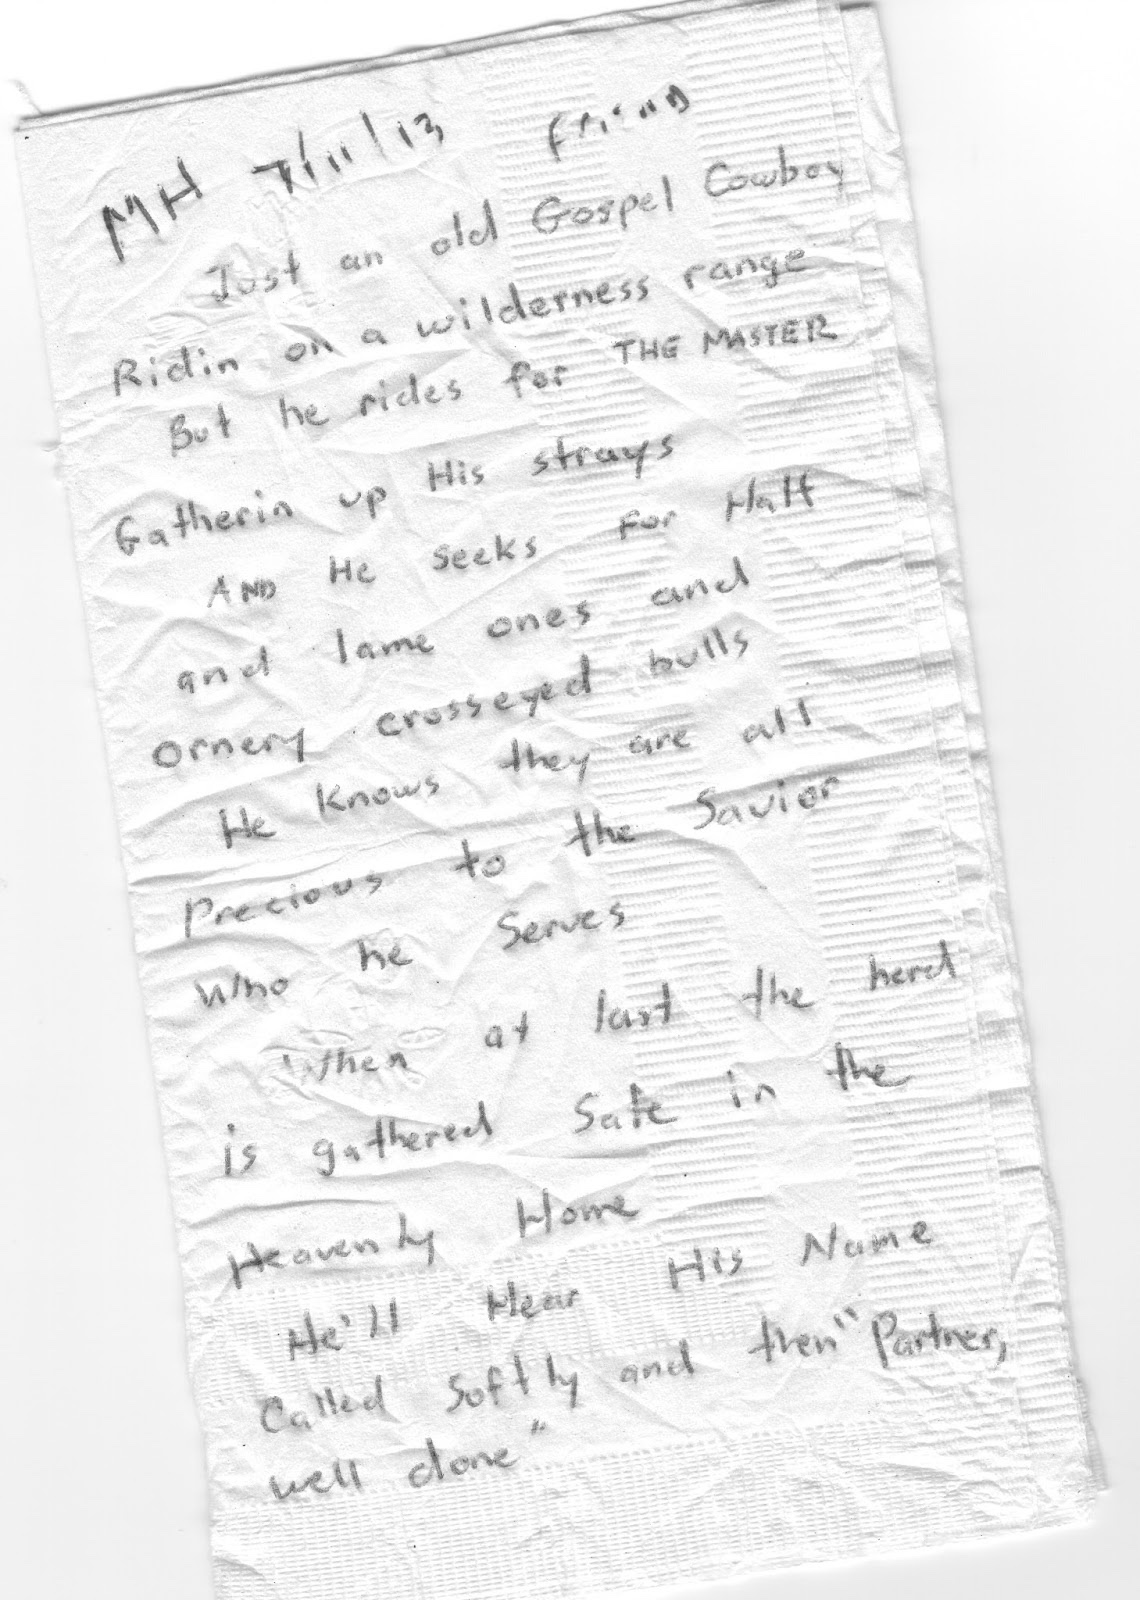 MH 7/11/13 friend
Just an old Gospel Cowboy
Ridin on a wilderness range
But he rides for THE MASTER
Gatherin up His strays
AND He seeks for Halt
and lame ones and
ornery crosseyed bulls
He knows they are all
precious to the Savior
who he Serves
When at last the herd
is gathered Safe in the
Heavenly Home
He'll Hear His Name
Called Softly and then "Partner,
well done"